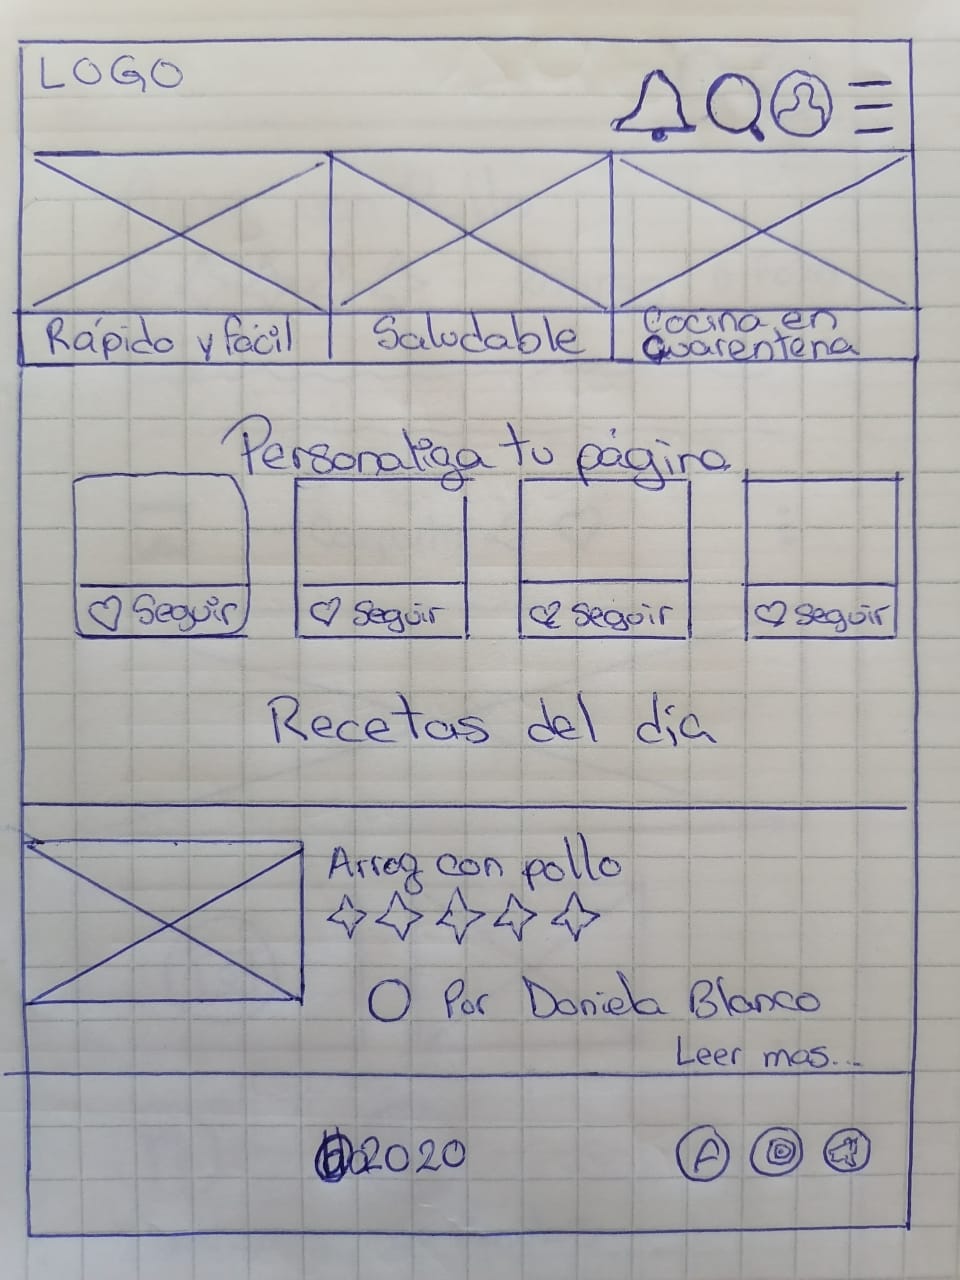 LOGO
Rápido y fácil
Saludable
Cocina en
Cuarentena
Personaliza tu página
Seguir
Seguir
Seguir
Seguir
Recetas del día
Arroz con pollo
Por Daniela Blanco
Leer mas...
2020